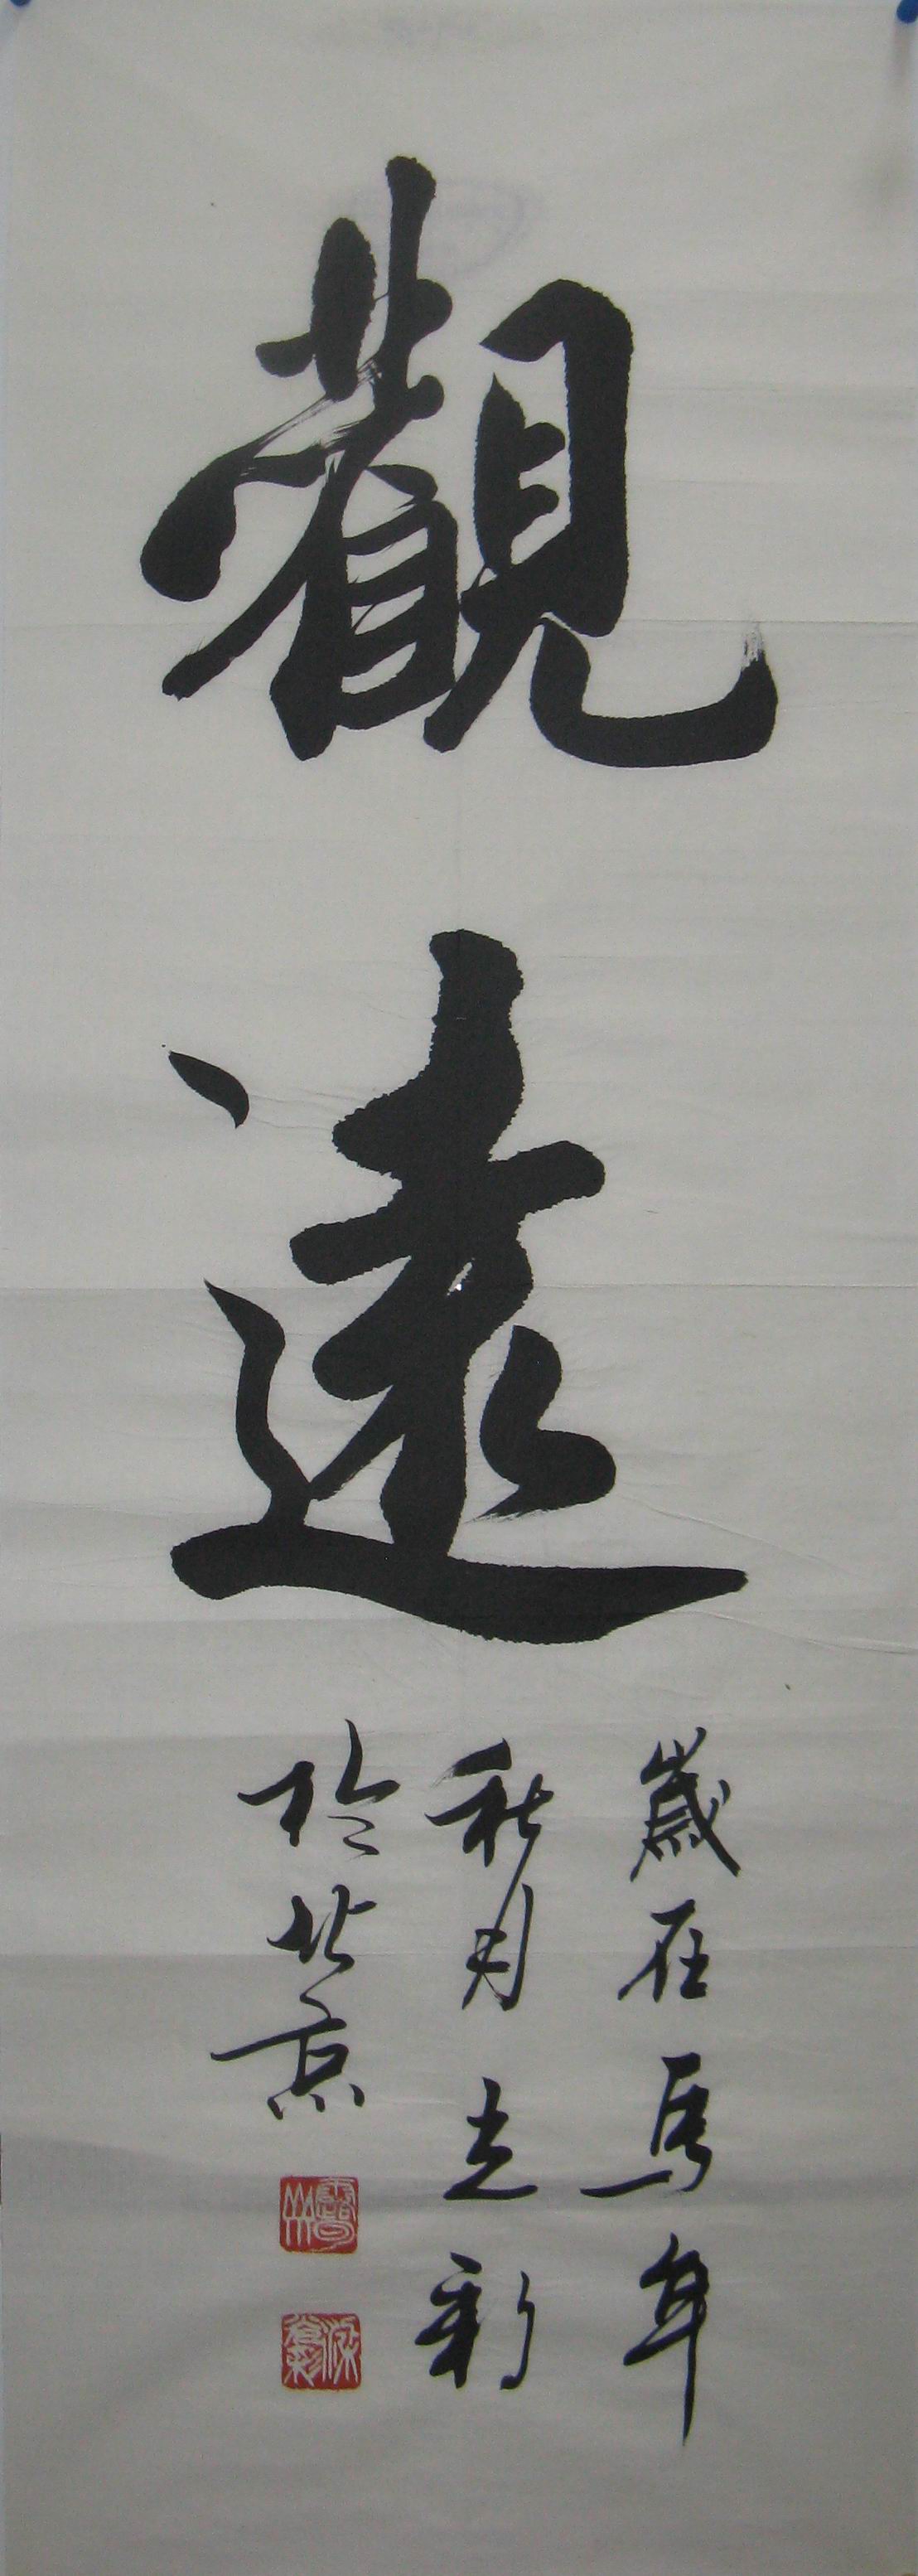 觀遠
歲在馬年
秋月志彩
於北京